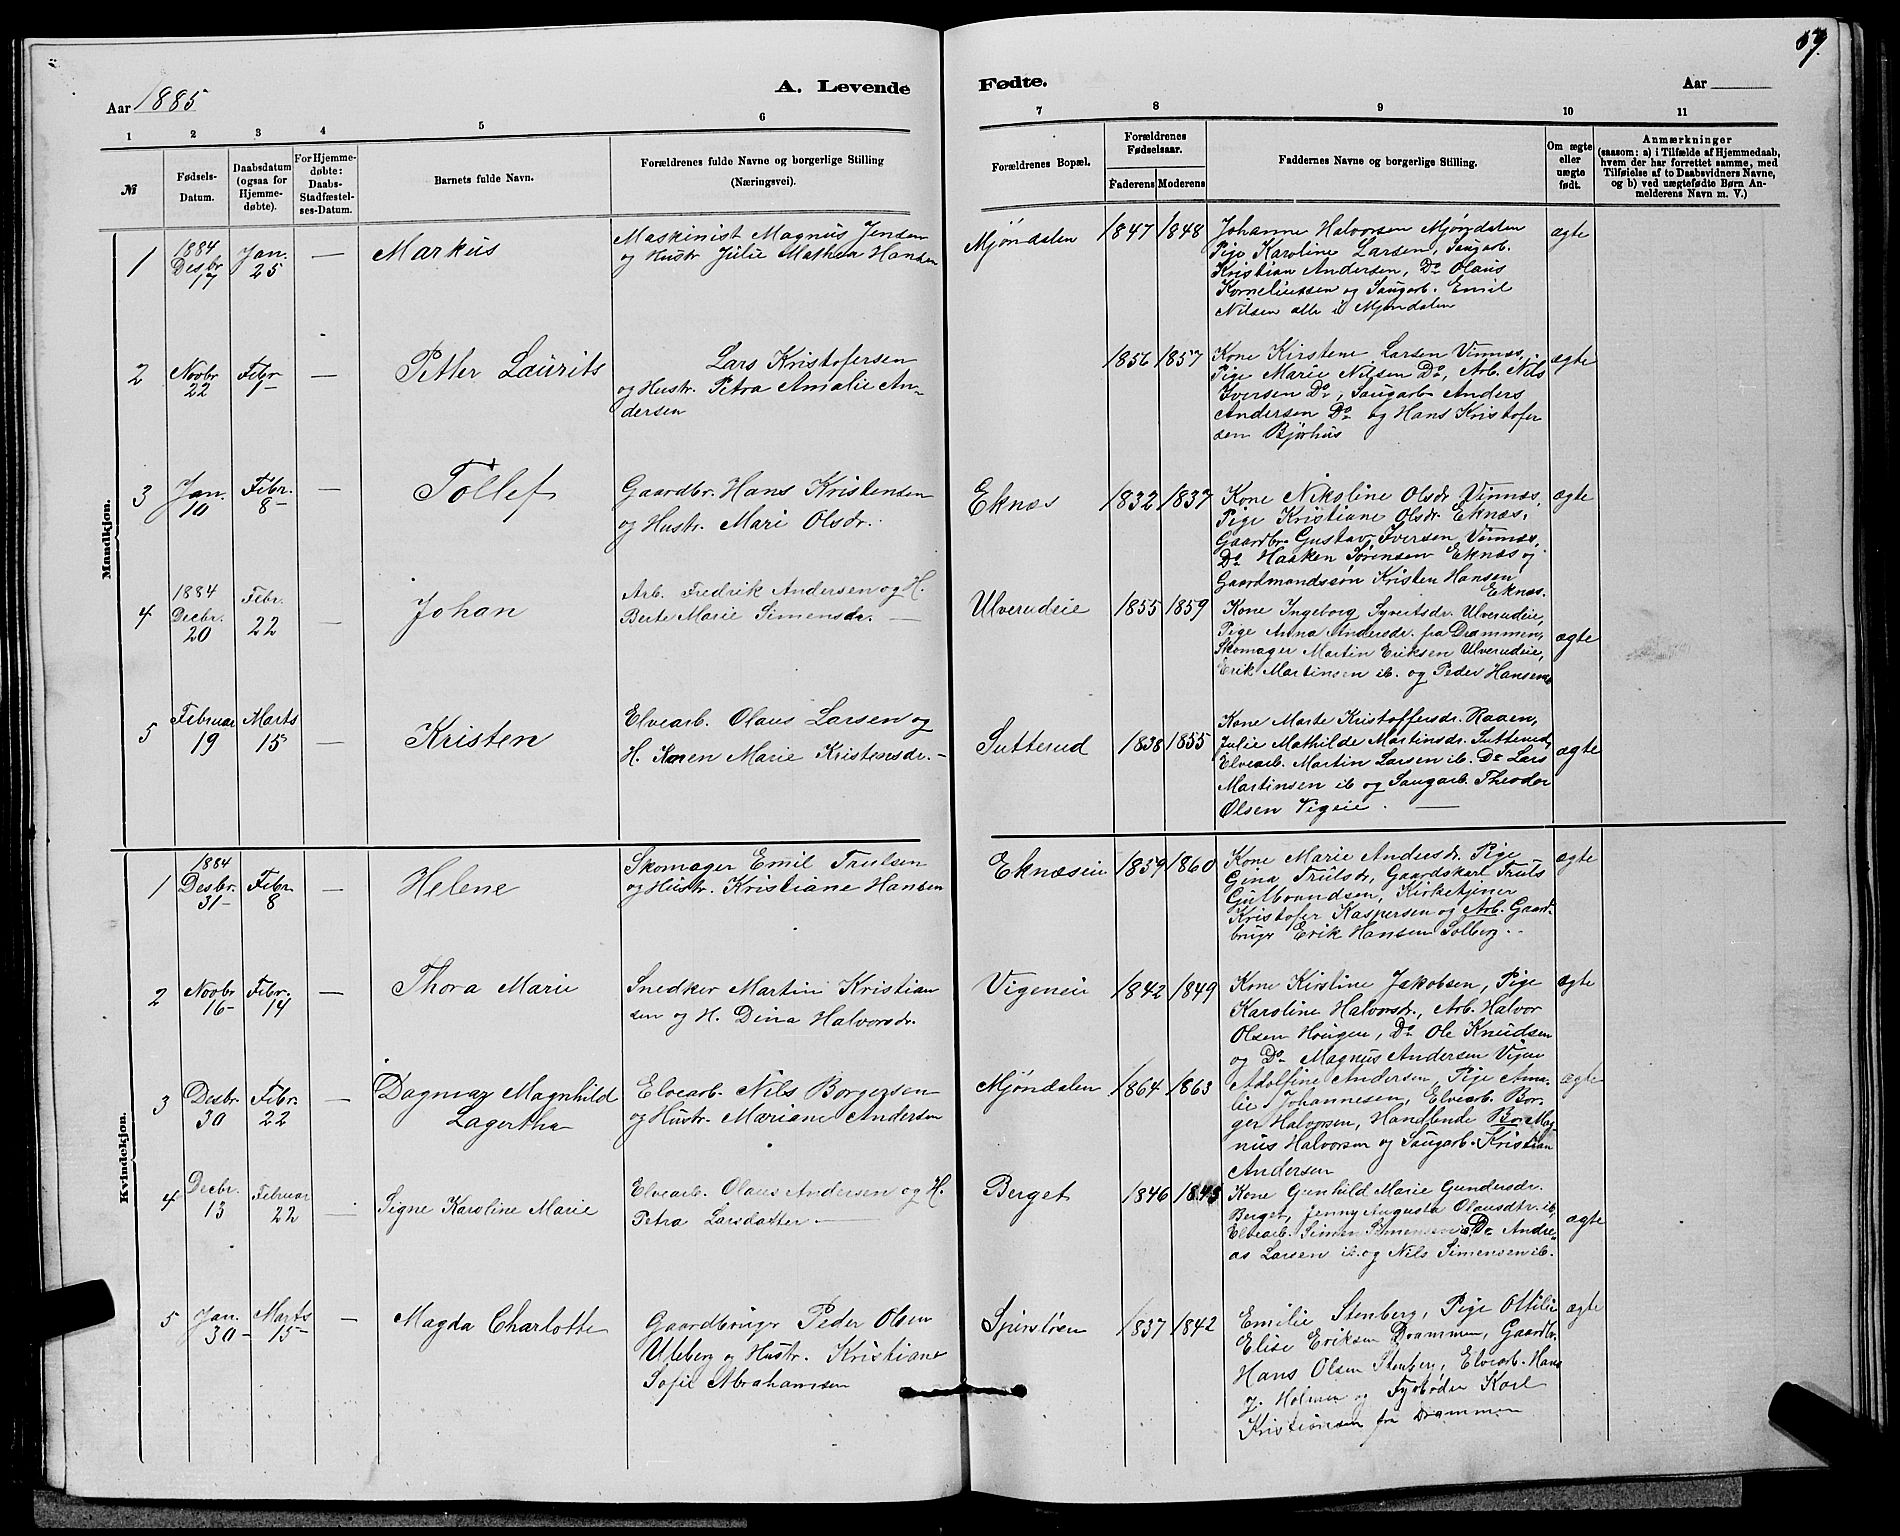 Aar 1885
A. Levende
Fødte.
Aar
1 2 3 4 5 6
7 8 9 10 11
№
Fødsels-
Datum.
Daabsdatum
(ogsaa for
Hjemme-
døbte).
For Hjemme-
døbte:
Daabs-
Stadfæstel-
ses-Datum.
Barnets fulde Navn.
Forældrenes fulde Navne og borgerlige Stilling
(Næringsvei).
Forældrenes Bopæl.
Forældrenes
Fødselsaar.
Faderens Moderens
Faddernes Navne og borgerlige Stilling.
Om ægte
eller
uægte
født.
Anmærkninger
(saasom: a) i Tilfælde af Hjemmedaab,
hvem der har forrettet samme, med
Tilføielse af to Daabsvidners Navne,
og b) ved uægtefødte Børn An-
melderens Navn m. V.)
Mandkjøn.
1
1884
Desbr
17
Jan.
25
—
Markus
Maskinist Magnus Jensen
og Hustr. Julie Mathea Hansen
Mjøndalen
1847 1848
Johanne Halvorsen Mjøndalen
Pige Karoline Larsen, Saugarb.
Kristian Andersen, Do Olaus
Korneliussen og Saugarb. Emil
Nilsen alle i Mjøndalen
ægte
2
Novbr
22
Febr
—
Petter Laurits
Lars Kristofersen
og Hustr. Petra Amalie An-
dersen
1856 1857
Kone Kirstene Larsen Vinnæs,
Pige Marie Nilsen Do, Arb. Nils
Iversen Do, Saugarb Anders
Andersen Do og Hans Kristofer
sen Bjørhus
ægte
3
Jan.
10
Febr.
8-
—
Tollef
Gaardbr. Hans Kristensen
og Hustr. Mari Olsdr.
Eknæs
1832 1837
Kone Nikoline Olsdr Vinnæs,
Pige Kristiane Olsdr. Eknæs,
Gaardbr. Gustav Iversen Vinnæs,
Do Haaken Sørensen Eknæs og
Gaardmandssøn Kristen Hansen
Eknæs.
ægte
4
1884
Decbr.
20
Febr.
22
—
Johan
Arb. Fredrik Andersen og H.
Berte Marie Simensdr. —
Ulverudeie
1855 1859
Kone Ingeborg Syvertsdr. Ulverudeie,
Pige Anna Andersdr. fra Drammen,
Skomager Martin Eriksen Ulverudeie,
Erik Martinsen ib. og Peder Hansen
ægte
5
Februar
19
Marts
15
—
Kristen
Elvearb. Olaus Larsen og
H. Karen Marie Kristensdr. —
Sutterud
1838 1855
Kone Marte Kristoffersdr. Raaen,
Julie Mathilde Martinsdr. Sutterud,
Elvearb. Martin Larsen ib. Do Lars
Martinsen ib og Saugarb. Theodor
Olsen Vegeie. —
ægte
Kvindekjøn.
1
1884
Desbr.
31-
Febr
8
—
Helene
Skomager Emil Trulsen
og Hustr. Kristiane Hansen
Eknæseie
1859 1860
Kone Marie Andersdr. Pige
Gina Trulsdr, Gaardskarl Truls
Gulbrandsen, Kirketjener
Kristofer Kaspersen og Arb. Gaard-
brugr Erik Hansen Solberg.
ægte
2
Novbr
16-
Febr.
14
—
Thora Marie
Snedker Martin Kristian
sen og H. Dina Halvorsdr.
Vigeneie
1842 1849
Kone Kirstine Jakobsen, Pige
Karoline Halvorsdr., Arb. Halvor
Olsen Hougen, Do Ole Knudsen
og Do Magnus Andersen
ægte
3
Desbr.
30
Febr.
22
—
Dagmar Magnhild
Lagertha
Elvearb. Nils Borgersen
og Hustr. Mariane Andersen
Mjøndalen
1864 1863
Adolfine Andersen, Pige Ama-
lie Johannesen, Elvearb. Bor-
ger Halvorsen, Handlende Bor Mag-
nus Halvorsen og Saugarb. Kristian
Andersen
ægte
4
Decbr.
13
Februar
22
—
Signe Karoline Marie
Elvearb. Olaus Andersen og H.
Petra Larsdatter —
Berget
1846
Kone Gunhild Marie Gundersdr.
Berget, Jenny Augusta Olausdtr. ib
Elvearb. Simen Simensen ib Do Andre-
as Larsen ib. og Nils Simensen ib.
ægte
5
Jan.
30-
Marts
15-
—
Magda Charlotte
Gaardbrugr Peder Olsen
Uleberg og Hustr. Kristiane
Sofie Abrahamsen
1837 1842
Emilie Stenberg, Pige Ottilie
Elise Eriksen Drammen, Gaardbr.
Hans Olsen Stenberg, Elvearb. Hans
J. Holmen og Fyrbøder Karl
Kristiansen fra Drammen
ægte